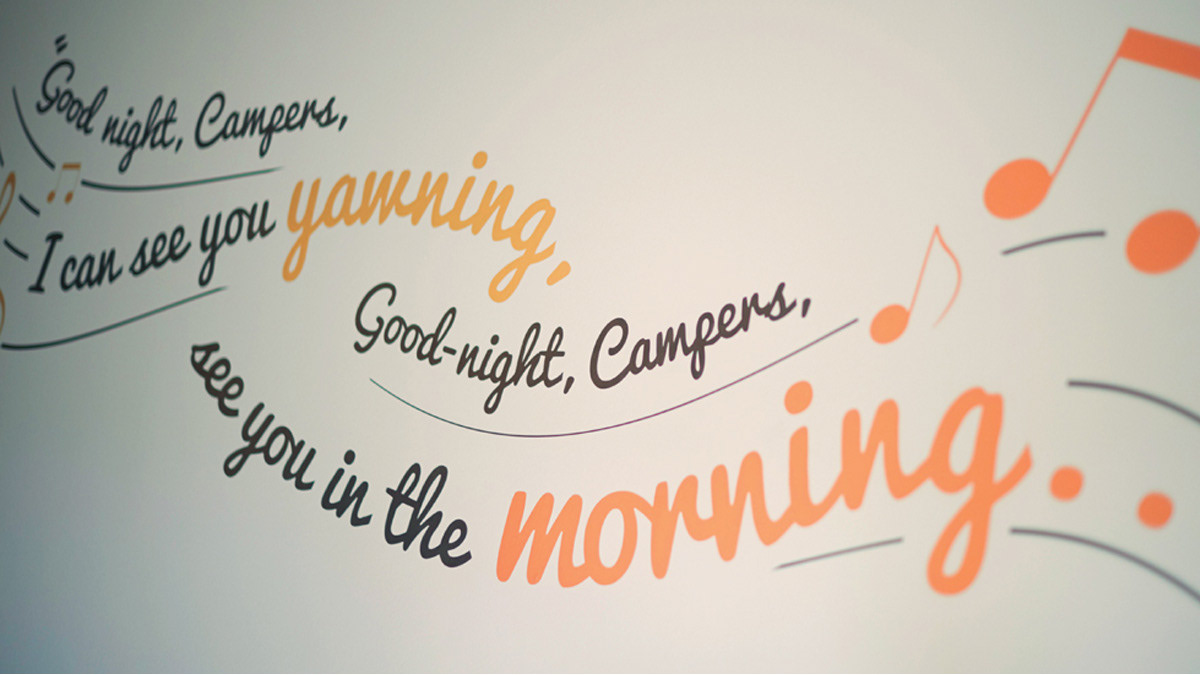 "Good night, Campers,
I can see you yawning,
Good-night, Campers,
see you in the morning.